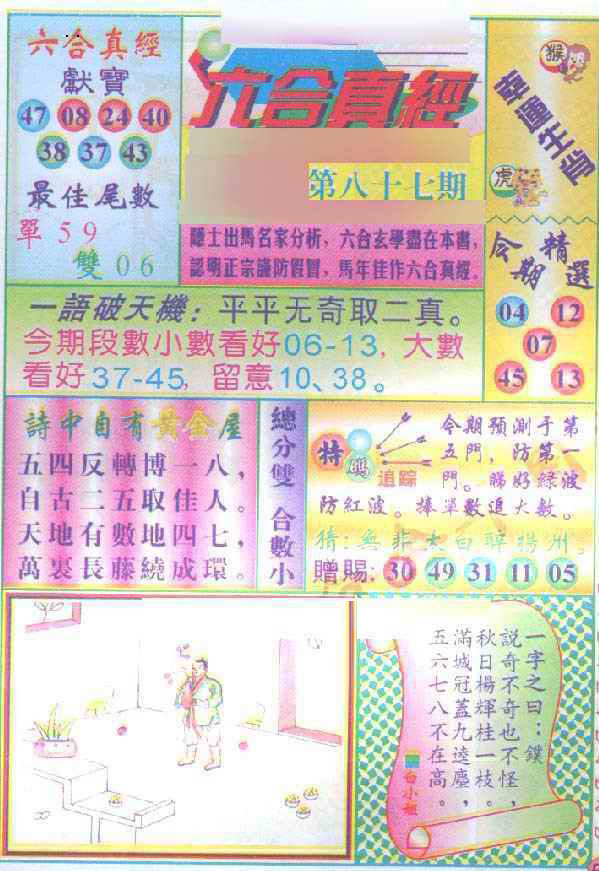 六合真經
獻寶
47 08 24 40
38 37 43
最佳尾數
單59
雙06
六合真經
第八十七期
隱士出馬名家分析,六合玄學盡在本書,
認明正宗謹防假冒,馬年佳作六合真經.
猴
幸運生肖
虎
今期精選
04 12
07
45 13
一語破天機:平平无奇取二真。
今期段數小數看好06-13,大數
看好37-45,留意10、38。
詩中自有黃金屋
五四反轉博一八,
自古二五取佳人。
天地有數地四七,
萬裏長藤繞成環。
總分雙 合數小
特碼
追踪
今期預測于第
五門,防第一
門。睇好綠波
防紅波。捧單數追大數。
猜:無非太白醉揚洲。
贈賜:30 49 31 11 05
一字之曰:鏷
說奇不奇也不怪,
秋日楊輝桂一枝。
滿城冠蓋九逵塵,
五六七八不在高。
白小姐